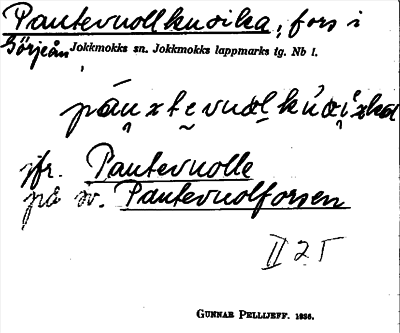 Pautevuollkuoika, fors i
Görjeån Jokkmokks sn. Jokkmokks lappmarks tg. Nb l.
jfr. Pautevuolle
på sv. Pautevuolforsen
II 25
GUNNAR PELLIJEFF. 1956.